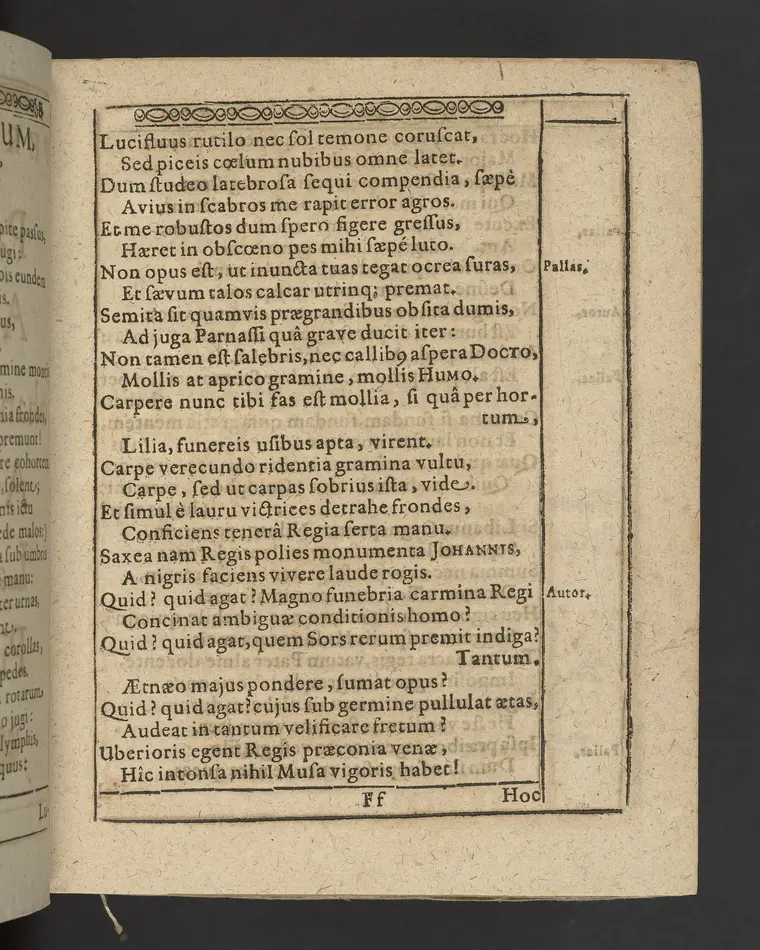 UM,
pite passus,
ugi:
ois eunden
is.
us,
mine monti
nis.
nia frondes,
premunt!
re cohorten
, solent;
nis ictu
ede malos:
a sub umbra
manu:
ter urnas,
corollas,
pedes.
rotarum
o jugi:
lymphis,
quus:
Lu-
Lucifluus rutilo nec sol temone coruscat,
Sed piceis cœlum nubibus omne latet.
Dum studeo latebrosa sequi compendia, sæpè
Avius in scabros me rapit error agros.
Et me robustos dum spero figere gressus,
Hæret in obscœno pes mihi sæpé luto.
Non opus est, ut inuncta tuas tegat ocrea suras,
Pallas.
Et sævum talos calcar utrinq; premat.
Semita sit quamvis prægrandibus obsita dumis,
Ad juga Parnassi quâ grave ducit iter:
Non tamen est salebris, nec callibꝰ aspera DOCTO,
Mollis at aprico gramine, mollis HUMO.
Carpere nunc tibi fas est mollia, si quâ per hor-
tum,
Lilia, funereis usibus apta, virent.
Carpe verecundo ridentia gramina vultu,
Carpe, sed ut carpas sobrius ista, vide.
Et simul è lauru victrices detrahe frondes,
Conficiens tenerâ Regia serta manu.
Saxea nam Regis polies monumenta JOHANNIS,
A nigris faciens vivere laude rogis.
Quid? quid agat? Magno funebria carmina Regi
Autor.
Concinat ambiguæ conditionis homo?
Quid? quid agat, quem Sors rerum premit indiga?
Tantum.
Ætnæo majus pondere, sumat opus?
Quid? quid agat? cujus sub germine pullulat ætas,
Audeat in tantum velificare fretum?
Uberioris egent Regis præconia venæ,
Hîc intonsa nihil Musa vigoris habet!
Ff
Hoc